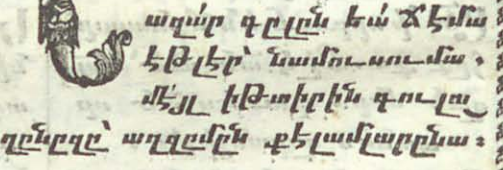 Նազա՛ր գըլըն եա՛ Ճէմա
էթլէր՝ նամուսումա.
մէյլ իթտիրին գուլա
ղընըզը՝ աղզըմըն քէլամլարընա։